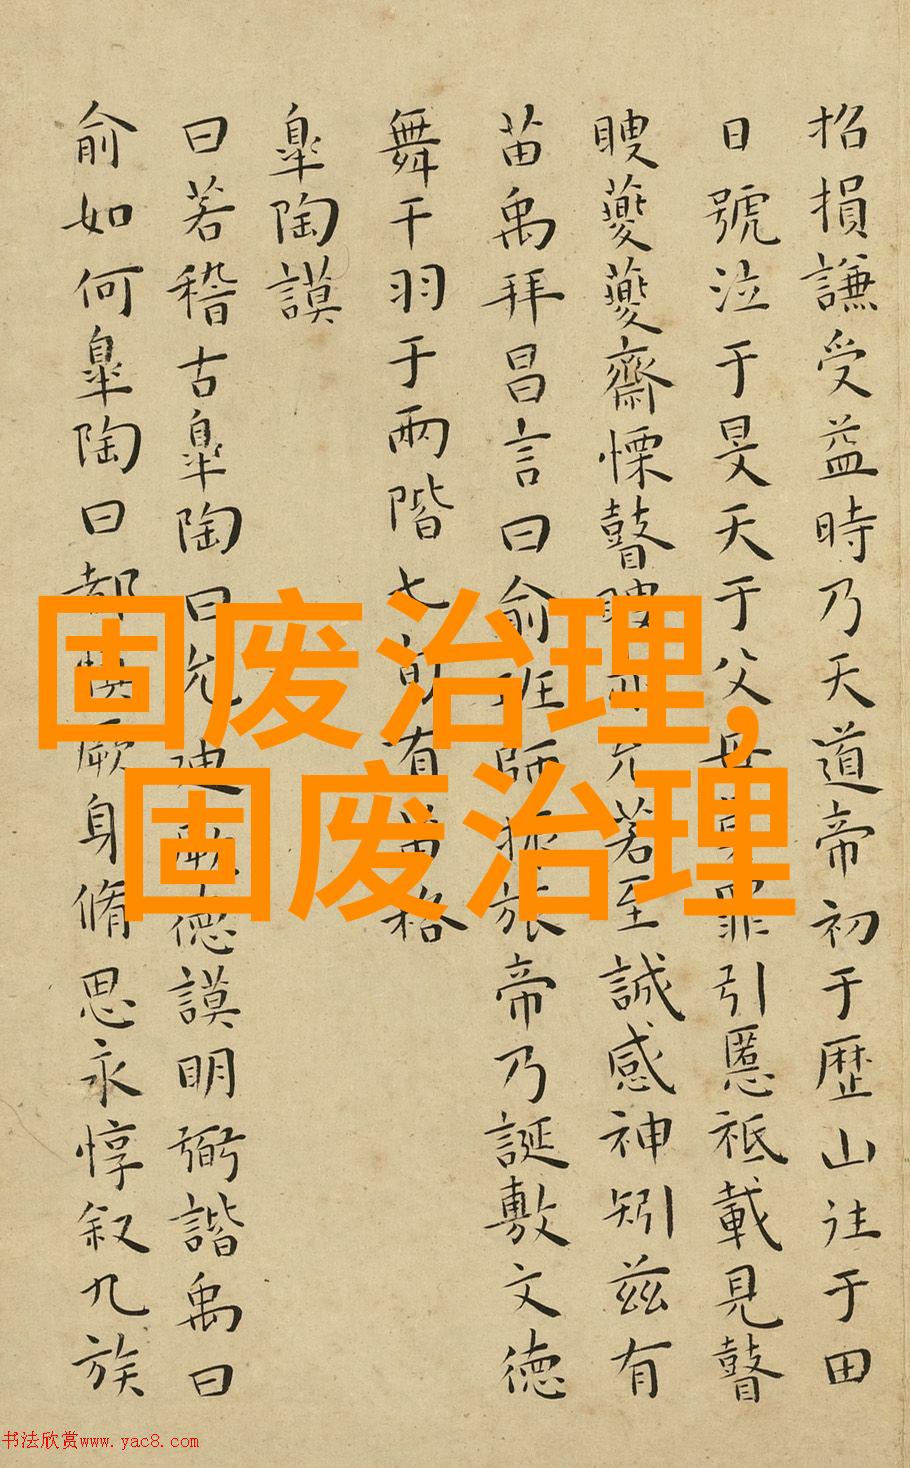 招損謙受益時乃天道帝初于歴山往于田
日號泣于旻天于父母負罪引慝祗載見瞽
瞍夔夔齋慄瞽瞍亦允若至誠感神矧茲有
苗禹拜昌言曰俞班師振旅帝乃誕敷文德
舞干羽于兩階七旬有苗格
皐陶謨
曰若稽古皐陶曰允迪厥德謨明弼諧禹曰
俞如何皐陶曰都慎厥身脩思永惇叙九族
固废治理,
固废治理
书法欣赏www.yac8.com